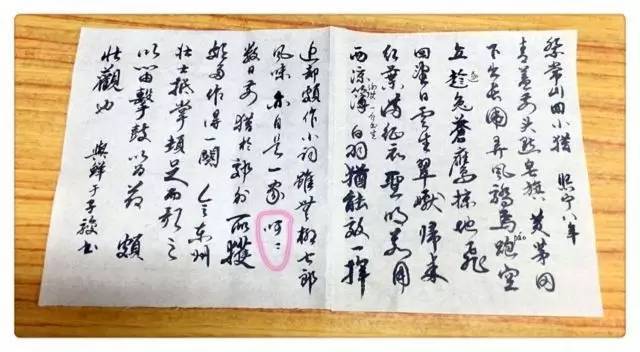 祭常山回小猎 熙宁八年
青盖前头点皂旗 黄茅冈
下出长围 弄风骄马跑空
立 趁兔苍鹰掠地飞
回望白云生翠巘 归来
红叶满征衣 圣明若用
西凉簿 白羽犹能效一挥
近却颇作小词 虽无柳七郎
风味 亦自是一家 呵呵
数日前猎于郊外 所獲
颇多 作得一阕 令东州
壮士抵掌顿足而歌之
吹笛击鼓以为节 颇
壮觀也
與鲜于子骏书